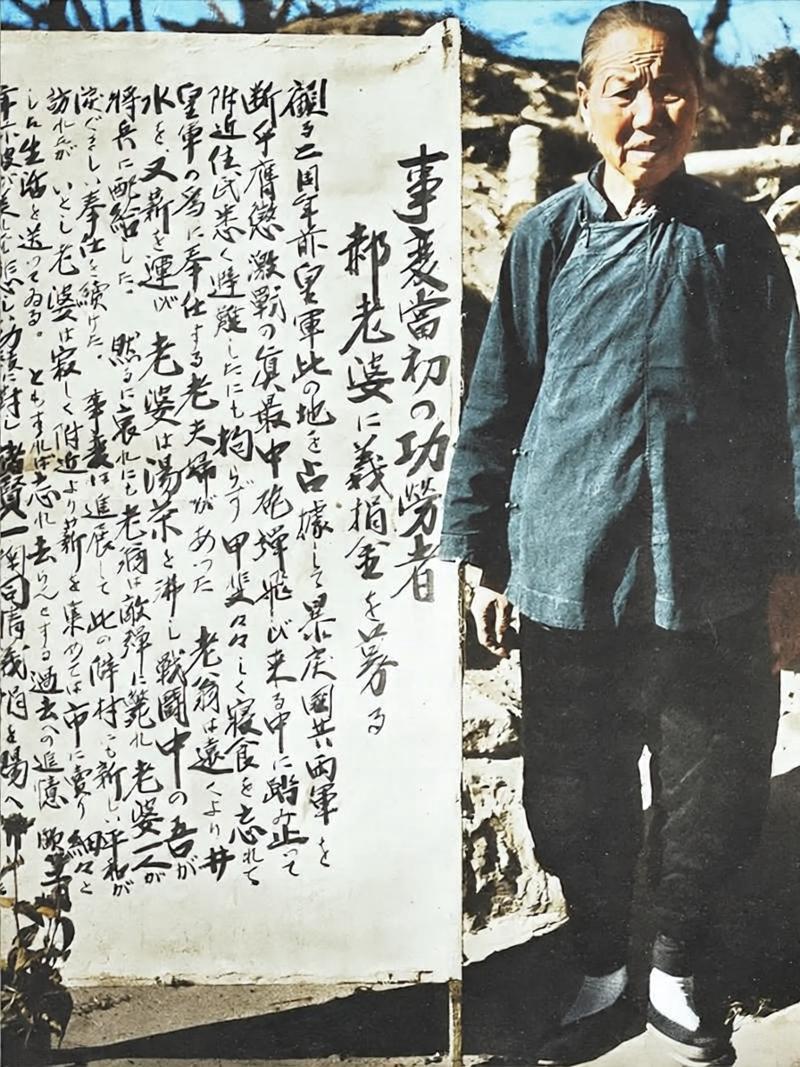 事変當初の功労者
郝老婆に義捐金を募る
顧る二周年前皇軍此の地を占據して暴戻國共両軍を
断乎膺懲激戰の眞最中砲弾飛び来る中に踏み止って
附近住民悉く避難したにも拘らず甲斐々々しく寝食を忘れて
皇軍の為に奉仕する老夫婦があった 老翁は遠くより井
水を、又薪を運び 老婆は湯茶を沸し戰闘中の吾が
將兵に配給した。 然るに哀れにも老翁は敵弾に斃れ老婆一人が
淚ぐましい奉仕を續けた。 事変は進展して此の僻村にも新しい平和が
訪れたが いとし老婆は寂しく附近より薪を集めては市に賣り細々と
した生活を送ってゐる。 ともすれば忘れ去らんとする過去への追憶
諸賢一掬同情義捐を賜へ